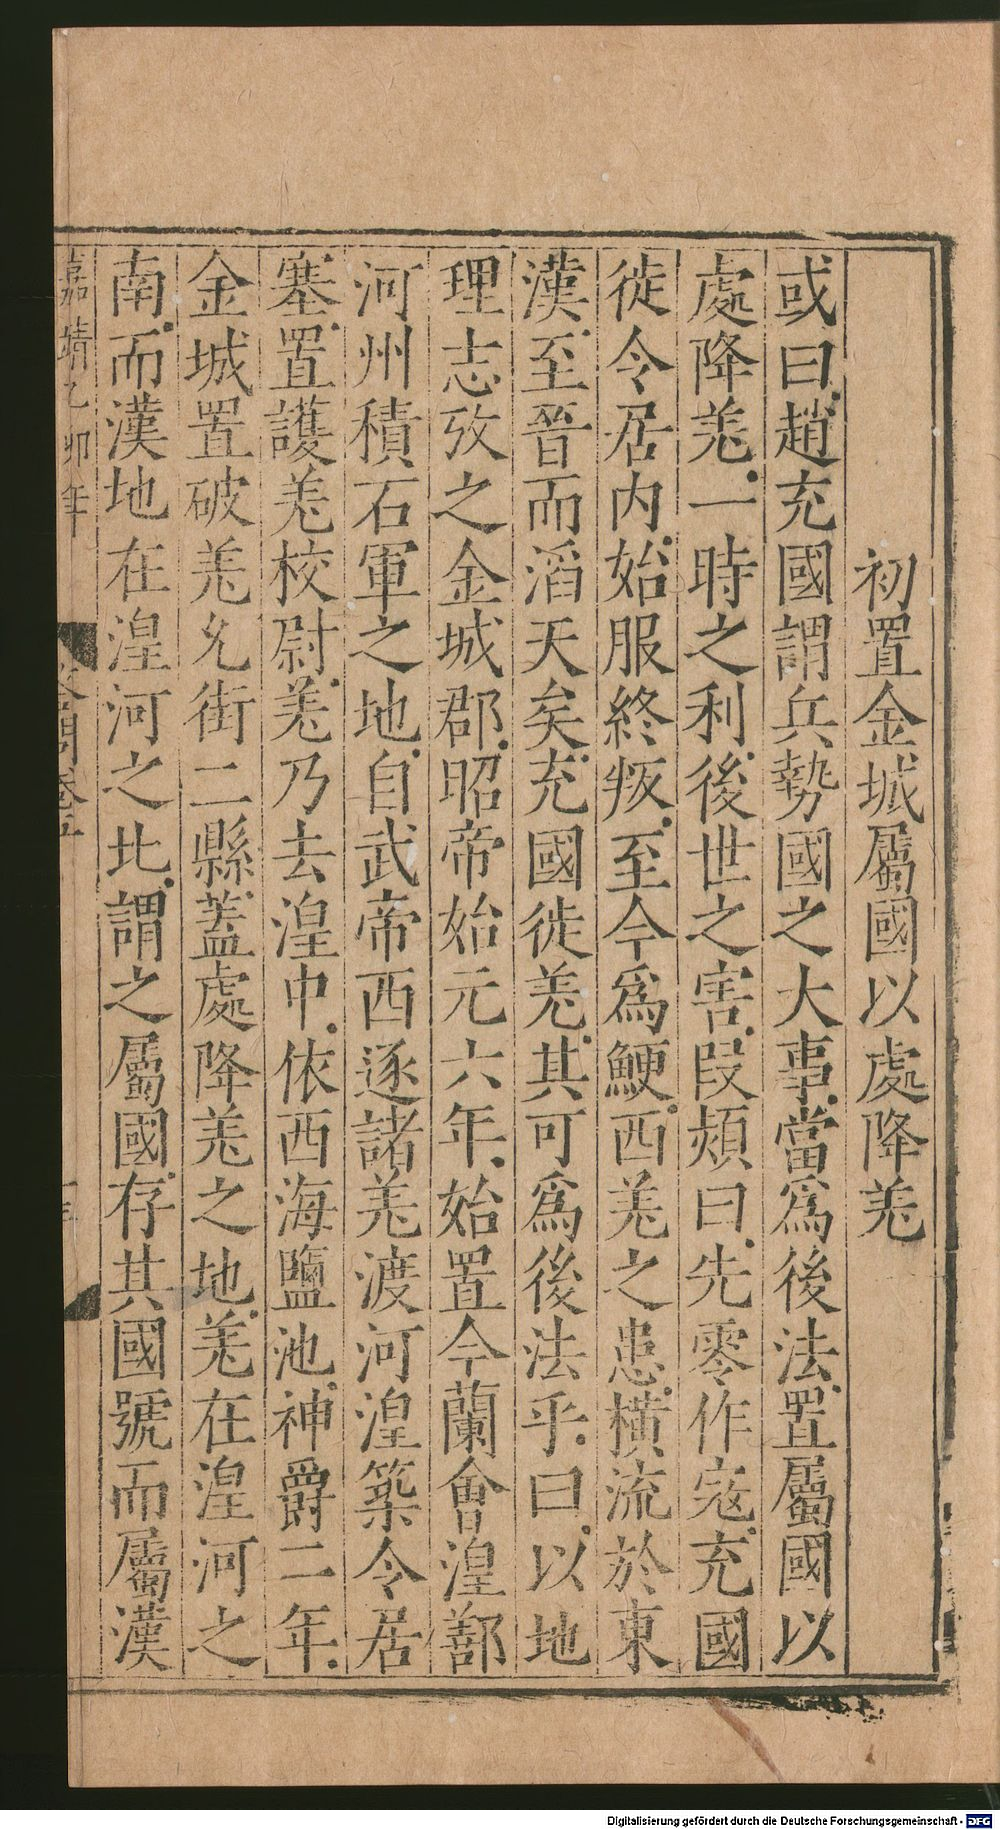 初置金城屬國以處降羌
或曰趙充國謂兵勢國之大事當爲後法置屬國以
處降羌一時之利後世之害段熲曰先零作寇充國
徙令居内始服終叛至今爲鯁西羌之患橫流於東
漢至晉而滔天矣充國徙羌其可爲後法乎曰以地
理志攷之金城郡昭帝始元六年始置今蘭會湟鄯
河州積石軍之地自武帝西逐諸羌渡河湟築令居
塞置護羌校尉羌乃去湟中依西海鹽池神爵二年
金城置破羌允街二縣蓋處降羌之地羌在湟河之
南而漢地在湟河之北謂之屬國存其國號而屬漢
嘉靖乙卯年
卷五
Digitalisierung gefördert durch die Deutsche Forschungsgemeinschaft - DFG